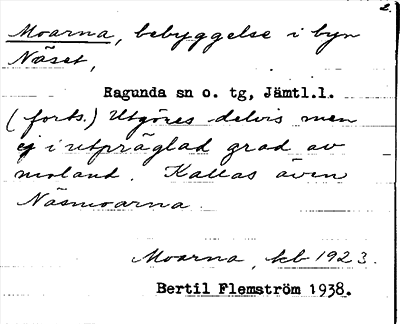 2.
Moarna, bebyggelse i byn
Näset,
Ragunda sn o. tg, Jämtl.l.
(forts.) Utgöres delvis men
ej i utpräglad grad av
moland. Kallas även
Näsmoarna.
Moarna, kb 1923.
Bertil Flemström 1938.